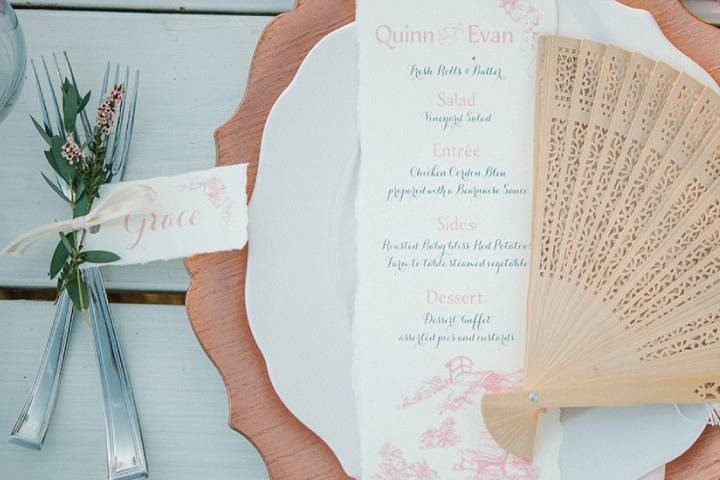 Quinn & Evan
Fresh Rolls & Butter
Salad
Vineyard Salad
Entrée
Chicken Cordon Bleu
prepared with a Bearnaise Sauce
Sides
Roasted Baby bliss Red Potatoes
Farm to table steamed vegetable
Dessert
Dessert buffet
assorted pies and custards
Grace